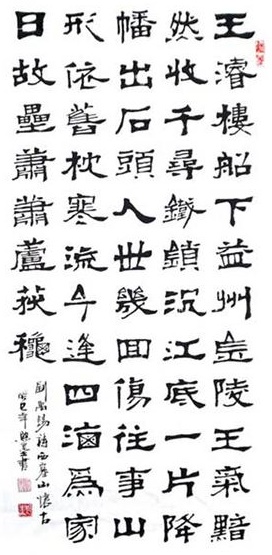 王濬樓船下益州金陵王氣黯
然收千尋鐵鎖沉江底一片降
幡出石頭人世幾回傷往事山
形依舊枕寒流今逢四海為家
日故壘蕭蕭蘆荻穐
劉禹錫詩西塞山懷古
癸巳年